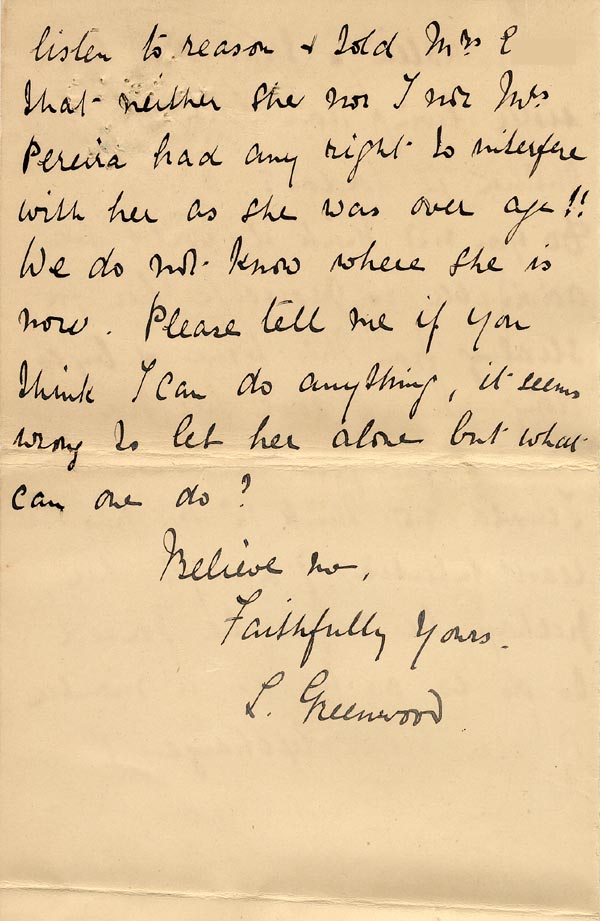 listen to reason & told Mrs E
that neither she nor I nor Mrs
Pereira had any right to interfere
with her as she was over age!!
We do not know where she is
now. Please tell me if you
think I can do anything, it seems
wrong to let her alone but what
can one do?
Believe me,
Faithfully Yours.
L. Greenwood